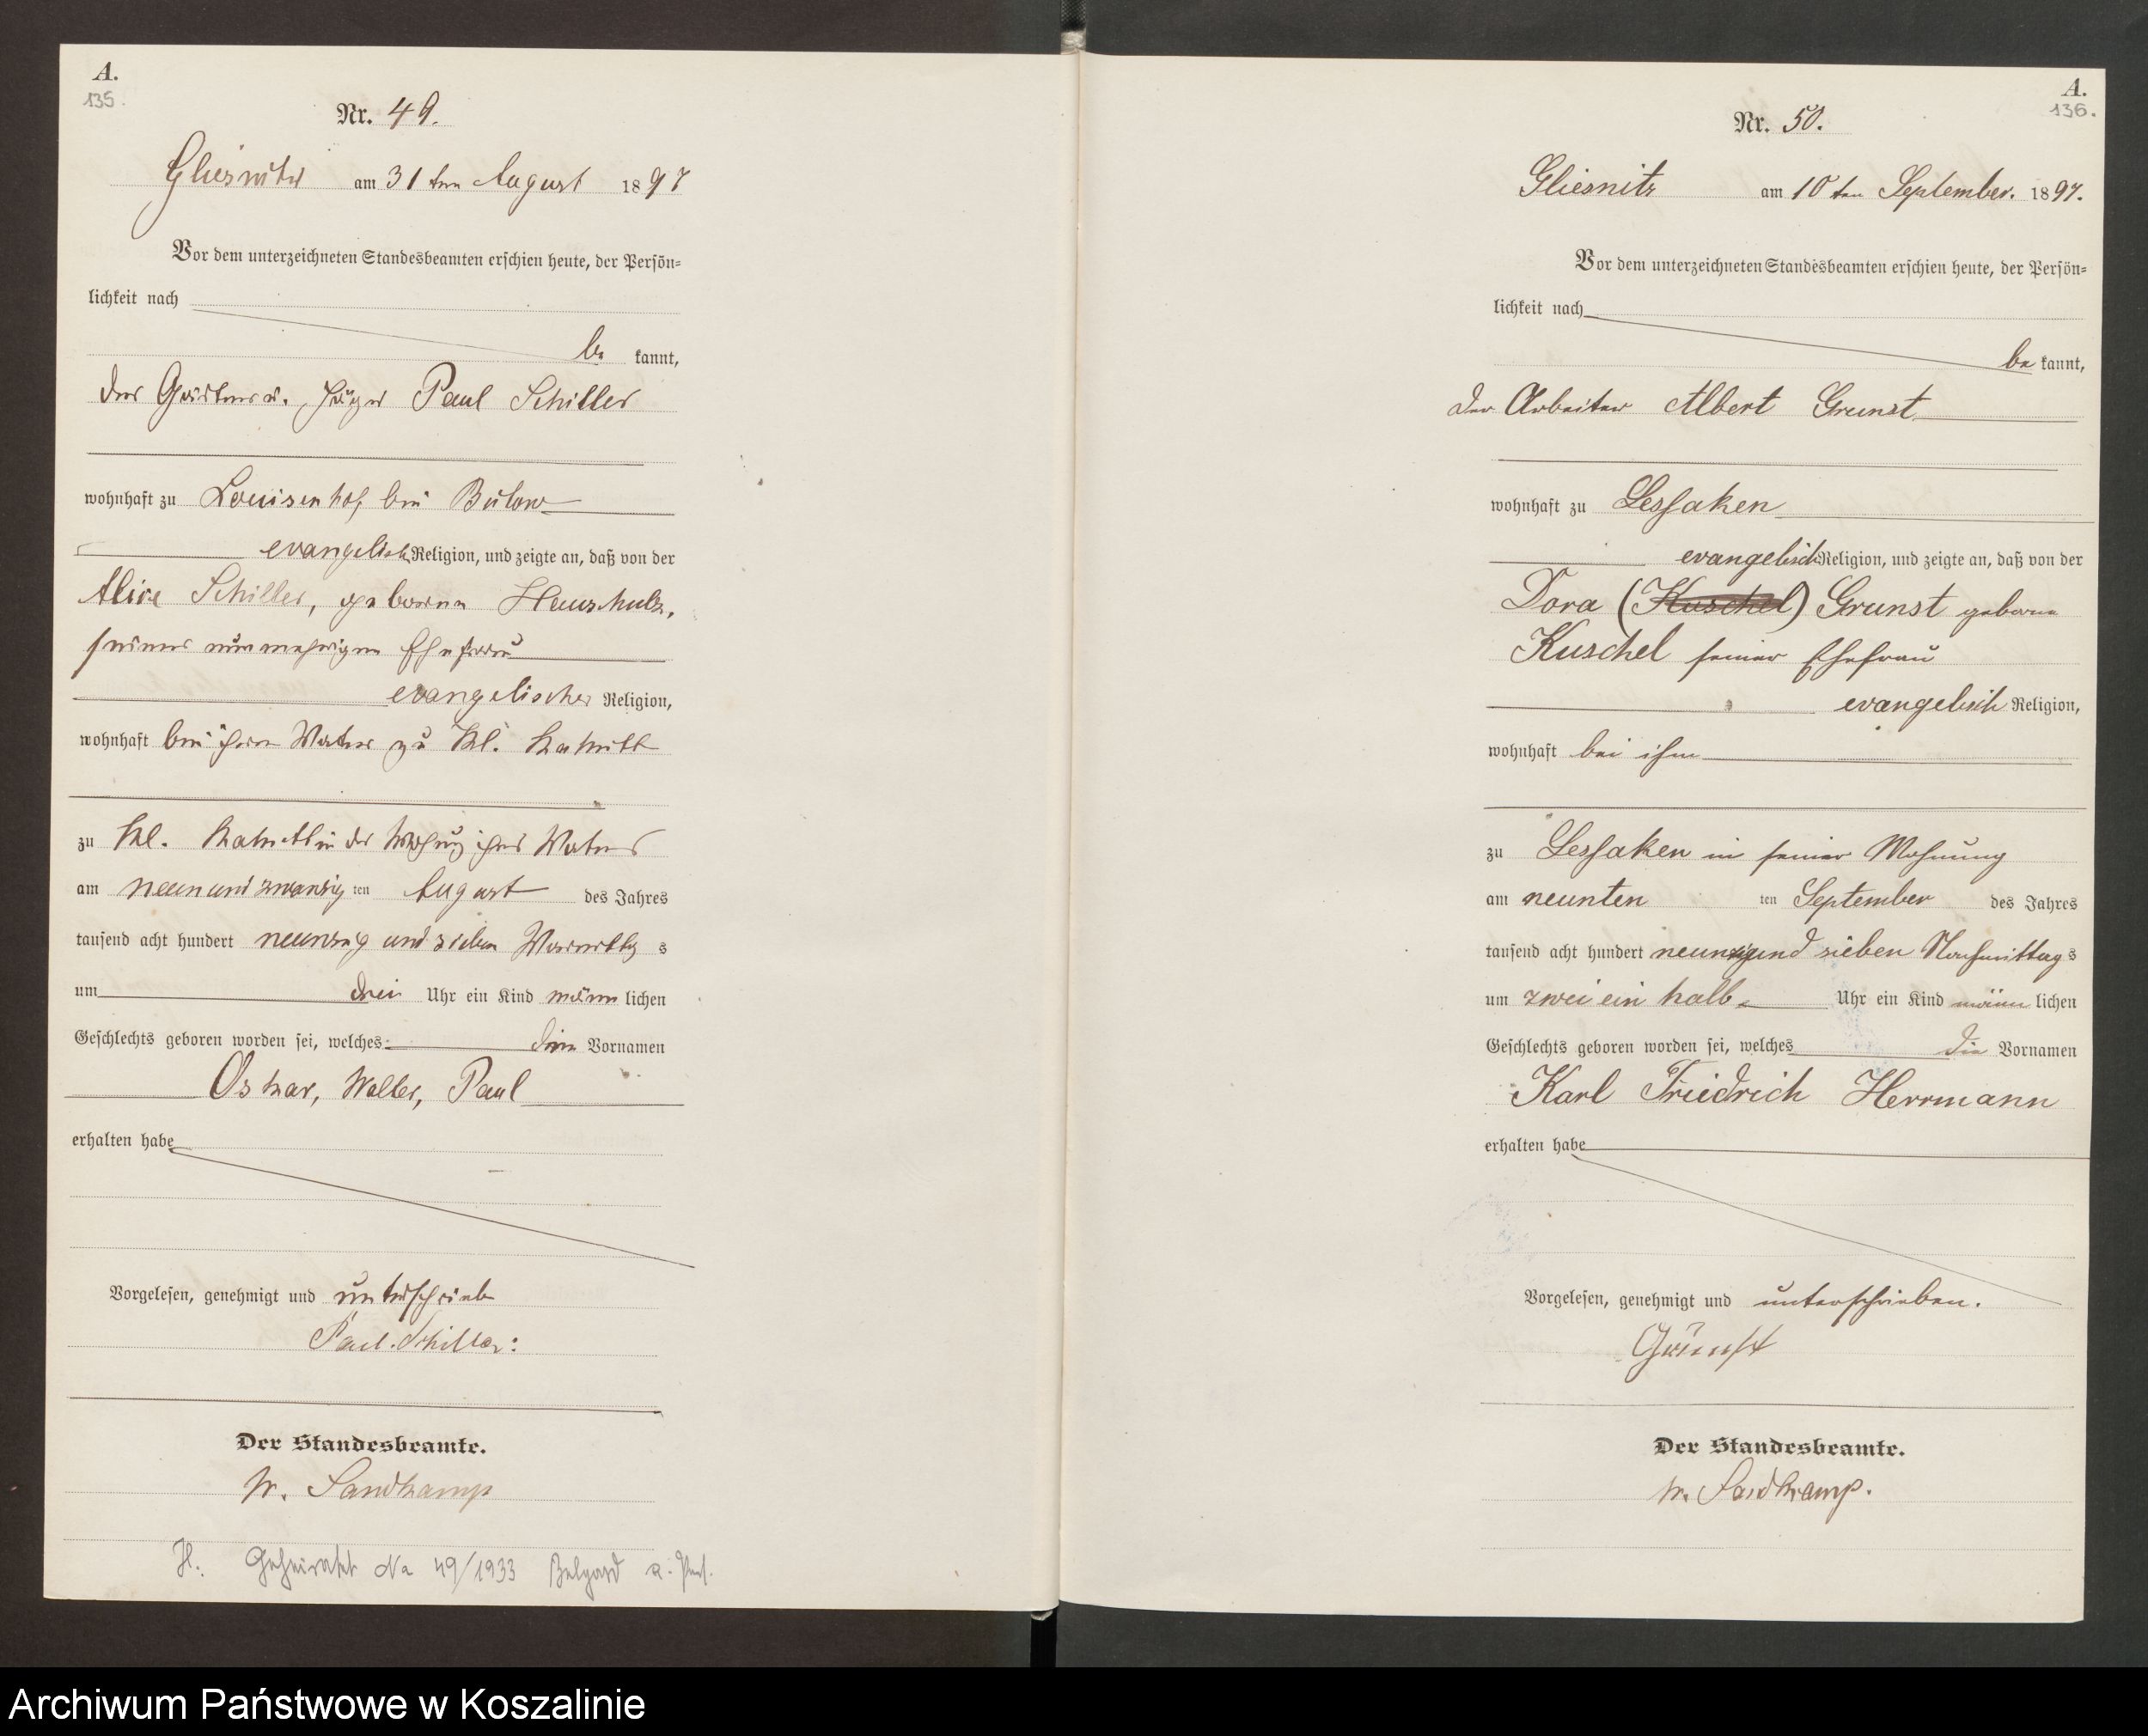 A.
135.
Nr. 49.
Gliesnitz am 31ten August 1897
Vor dem unterzeichneten Standesbeamten erschien heute, der Persön=
lichkeit nach
be kannt,
der Gärtner u. Jäger Paul Schiller
wohnhaft zu Louisenhof bei Bütow
evangelisch Religion, und zeigte an, daß von der
Alice Schiller, geborene
seiner nunmehrigen Ehefrau
evangelischer Religion,
wohnhaft bei ihrem Vater zu Kl.
zu Kl. in der Wohnung ihres Vaters
am neunundzwanzig ten August des Jahres
tausend acht hundert neunzig und sieben Vormittag s
um drei Uhr ein Kind männ lichen
Geschlechts geboren worden sei, welches die Vornamen
Oskar, Walter, Paul
erhalten habe
Vorgelesen, genehmigt und unterschrieben
Paul Schiller:
Der Standesbeamte.
W. Sandkamp
H.: Geheiratet No 49/1933 Belgard a. Pers.
A.
136.
Nr. 50.
Gliesnitz am 10ten September. 1897.
Vor dem unterzeichneten Standesbeamten erschien heute, der Persön=
lichkeit nach
be kannt,
der Arbeiter Albert Grunst
wohnhaft zu Lessaken
evangelisch Religion, und zeigte an, daß von der
Dora (Kuschel) Grunst geborene
Kuschel seiner Ehefrau
evangelisch Religion,
wohnhaft bei ihm
zu Lessaken in seiner Wohnung
am neunten ten September des Jahres
tausend acht hundert neunzigund sieben Nachmittag s
um zwei ein halb Uhr ein Kind männ lichen
Geschlechts geboren worden sei, welches die Vornamen
Karl Friedrich Herrmann
erhalten habe
Vorgelesen, genehmigt und unterschrieben.
Grunst
Der Standesbeamte.
W. Sandkamp.
Archiwum Państwowe w Koszalinie